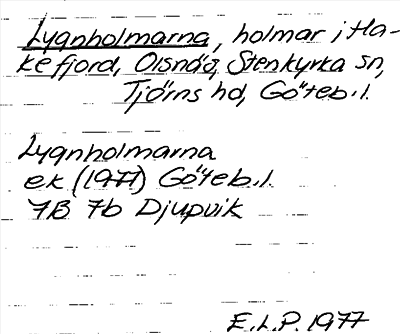 Lygnholmarna, holmar i Ha-
kefjord, Olsnäs, Stenkyrka sn,
Tjörns hd, Göteb.l.
Lygnholmarna
ek (1977) Göteb.l.
7B 7b Djupvik
E.L.P. 1977